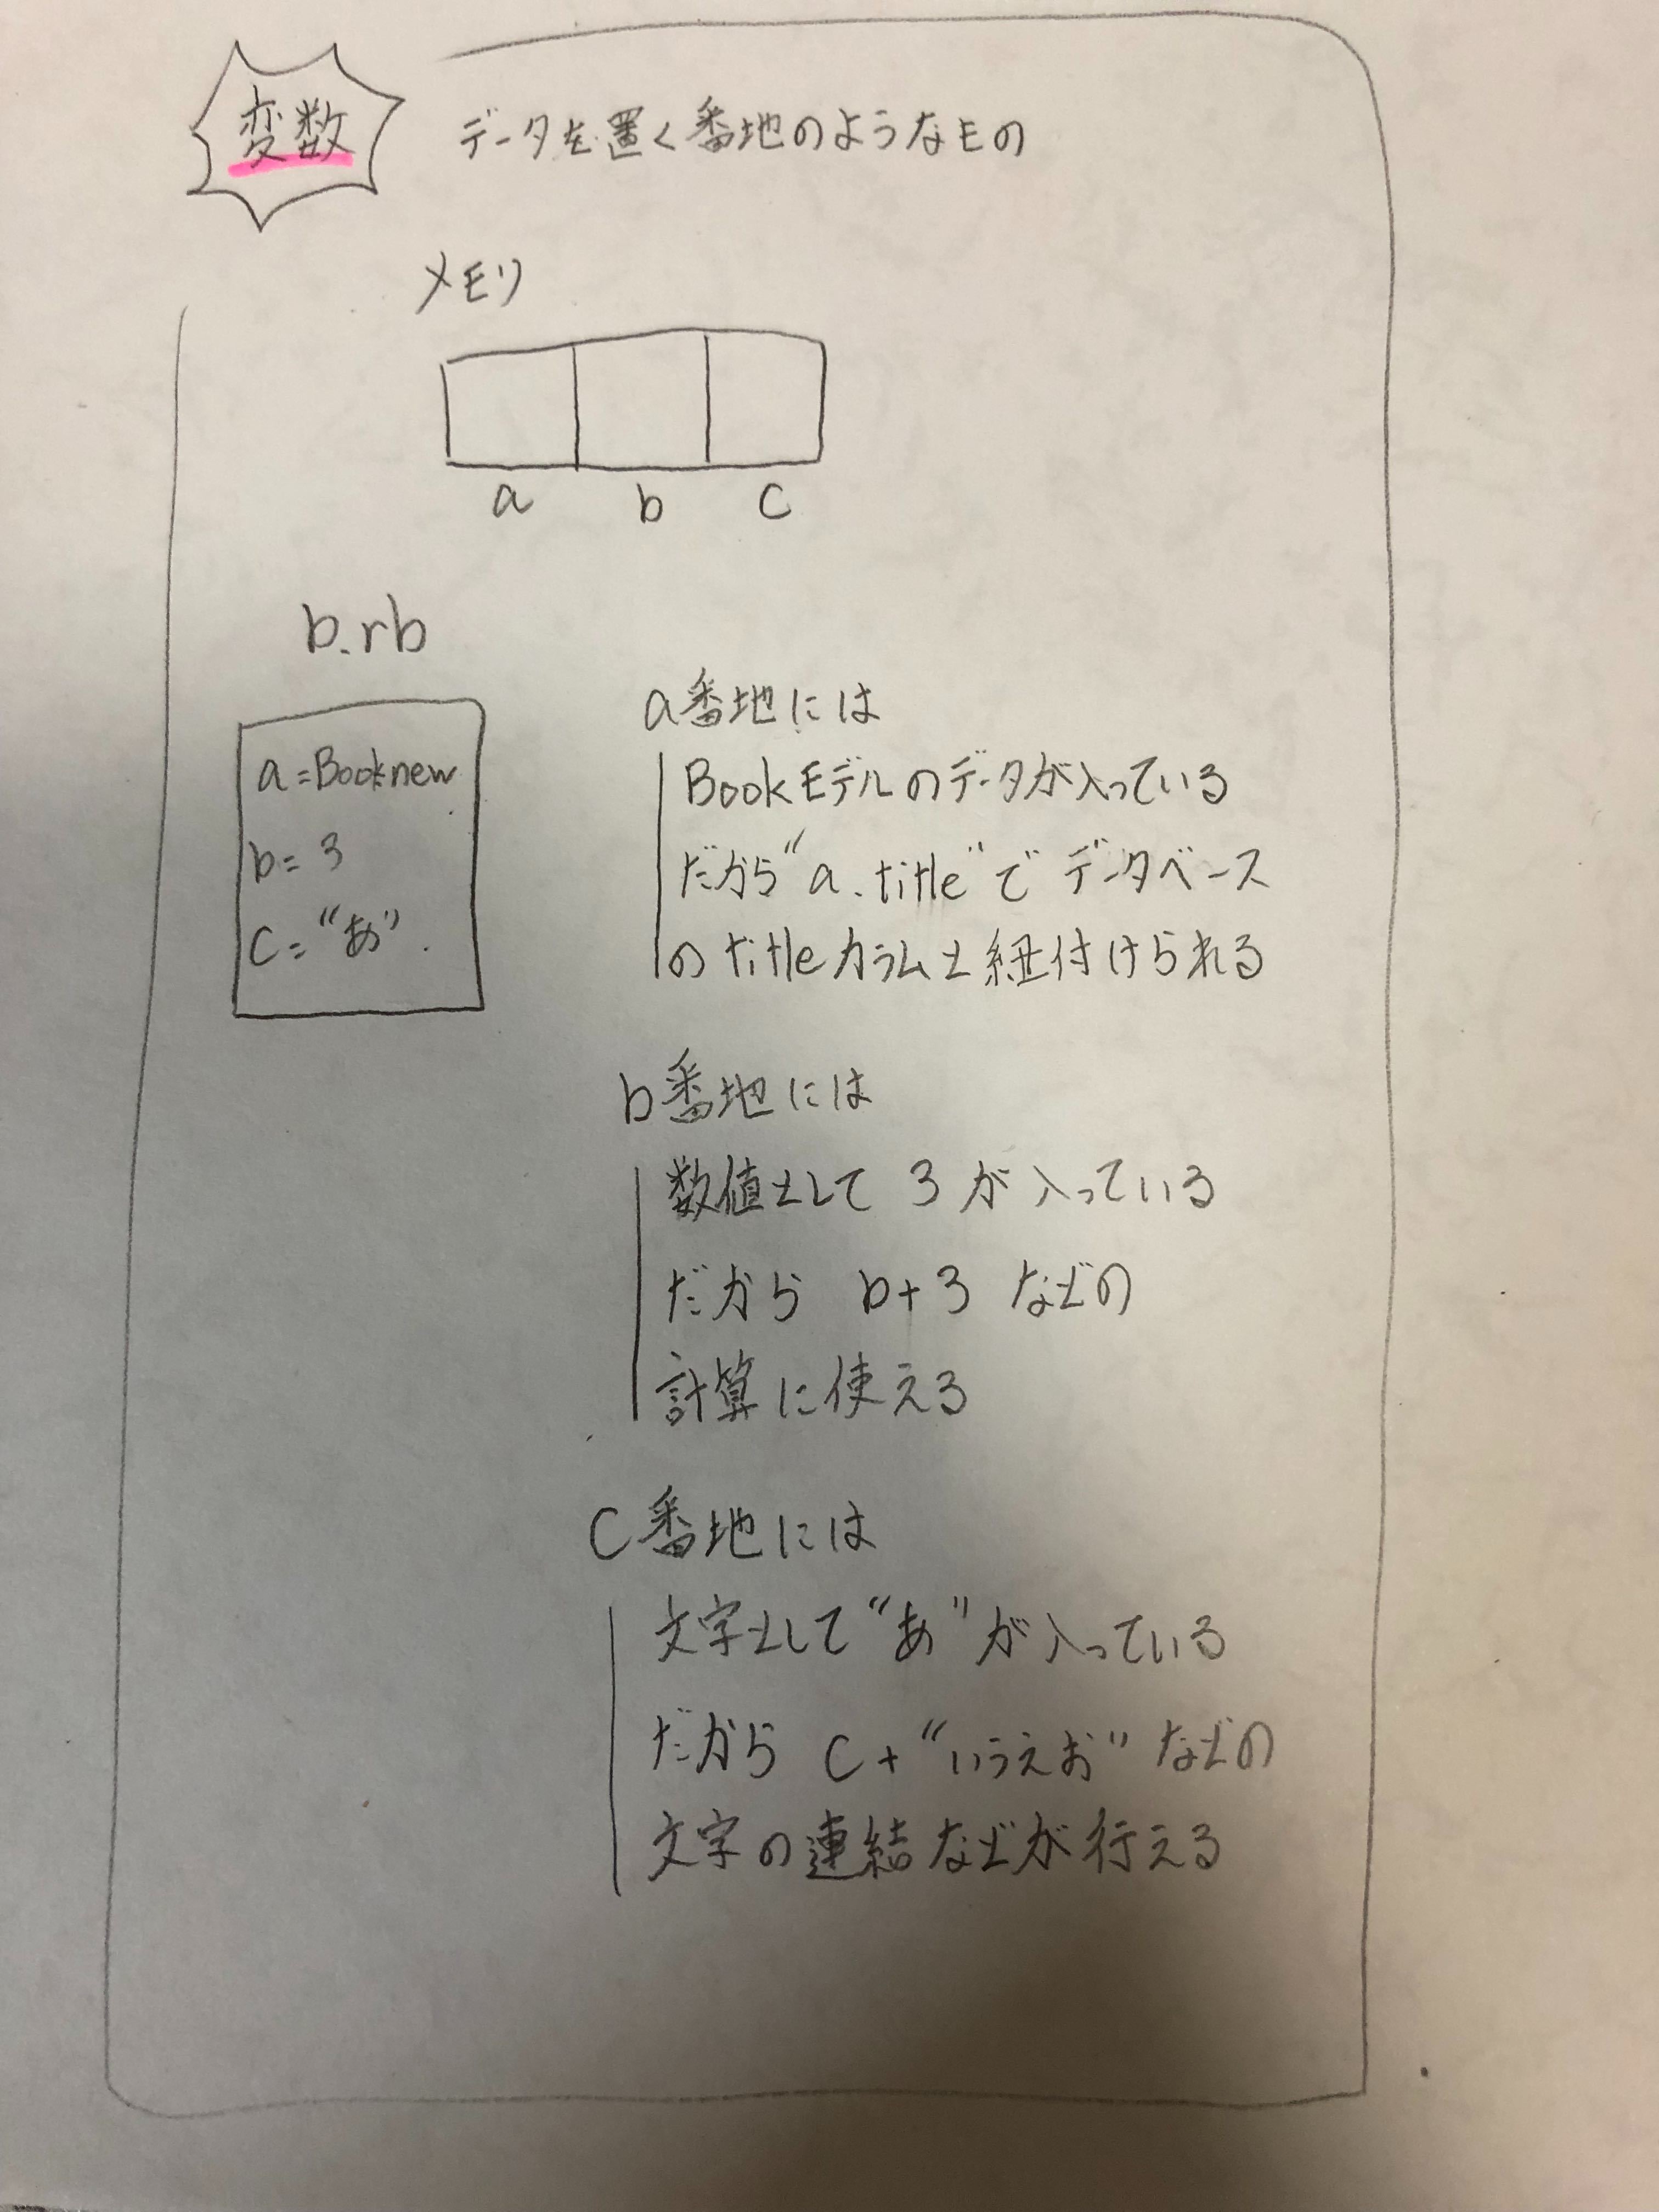 変数
データを置く番地のようなもの
メモリ
a b c
b.rb
a=Booknew
b=3
c="あ".
a番地には
Bookモデルのデータが入っている
だから"a.title"でデータベース
のtitleカラムと紐付けられる
b番地には
数値として 3 が入っている
だから b+3 などの
計算に使える
C番地には
文字として"あ"が入っている
だから C+"いうえお"などの
文字の連結などが行える